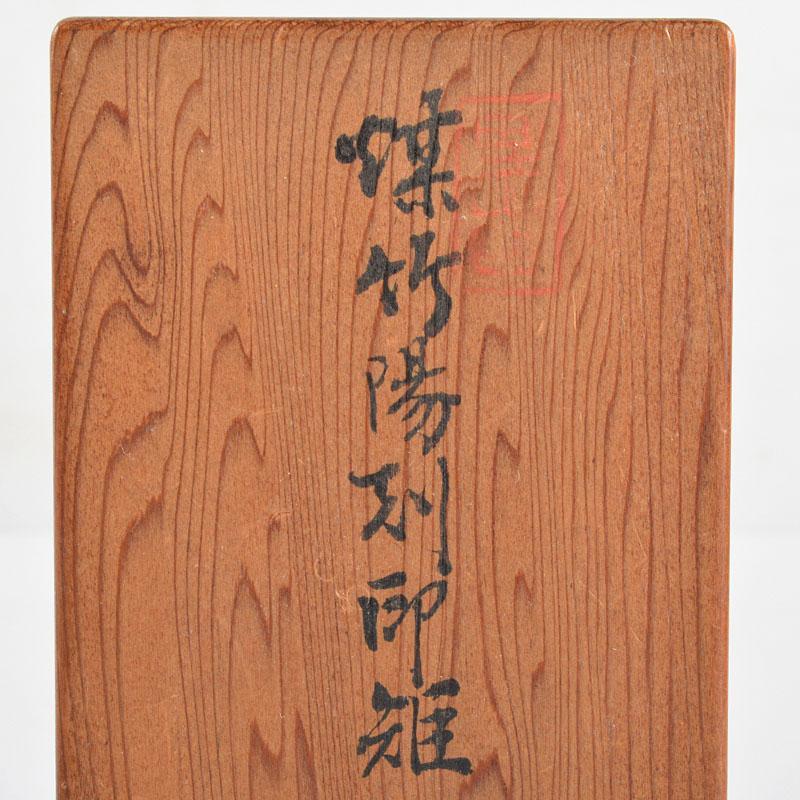 煤竹陽刻印雉